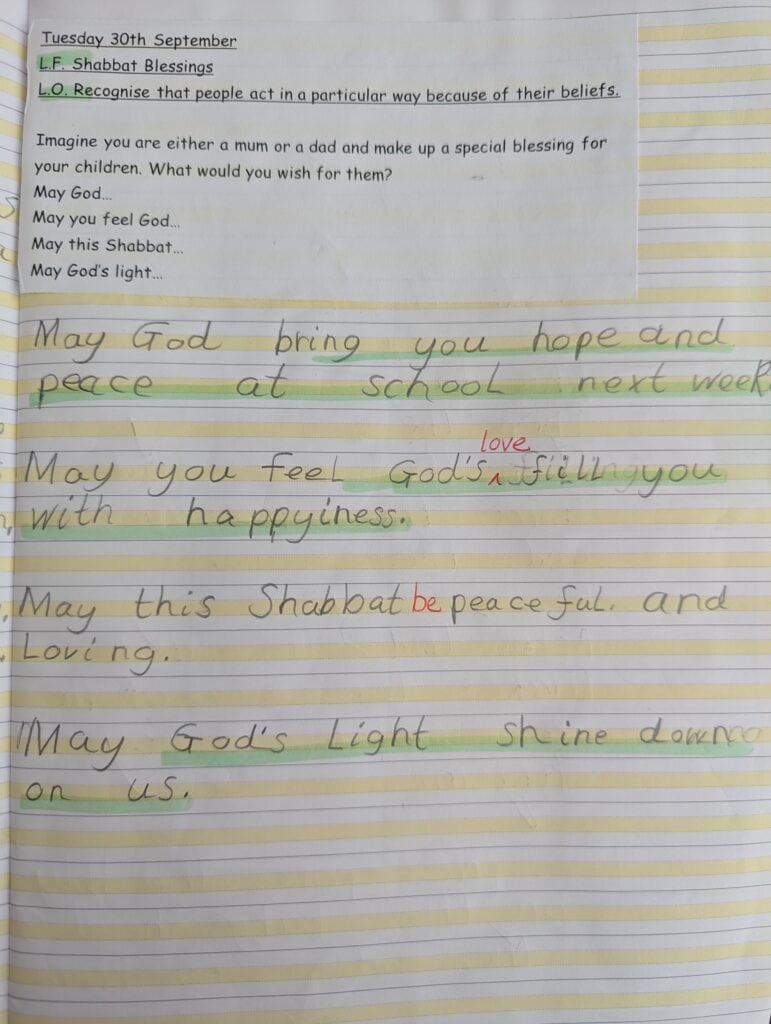 Tuesday 30th September
L.F. Shabbat Blessings
L.O. Recognise that people act in a particular way because of their beliefs.
Imagine you are either a mum or a dad and make up a special blessing for
your children. What would you wish for them?
May God...
May you feel God...
May this Shabbat...
May God's light...
May God bring you hope and
peace at school next week
May you feel God's love filling you
with happyiness.
May this Shabbat be peaceful. and
Loving.
May God's Light shine down
on us.